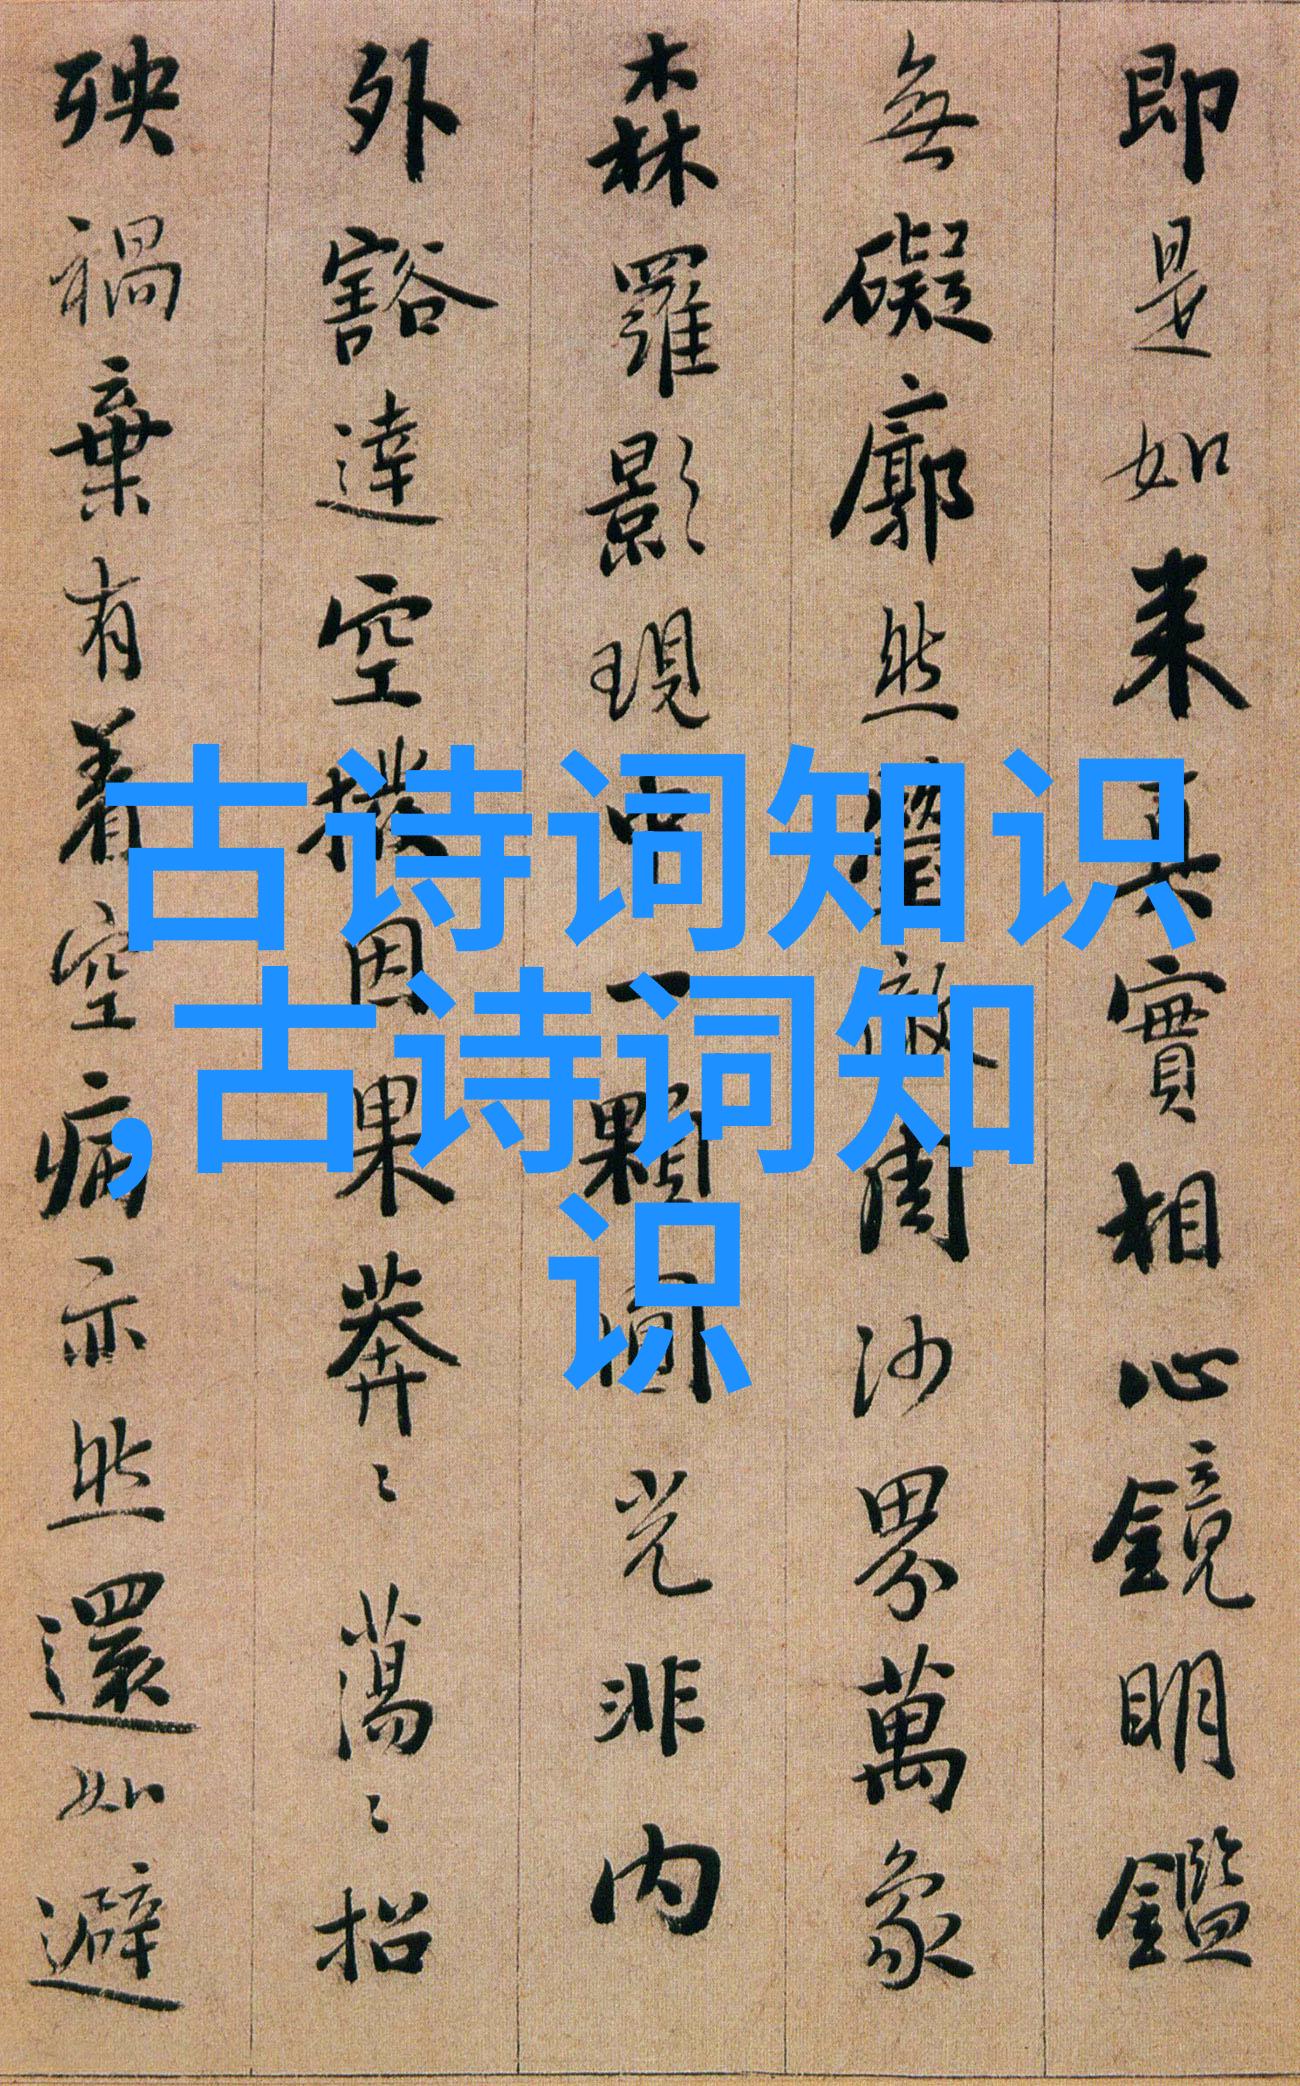 古诗词知识
,古诗词知
识
即是如来真實相心鏡明鑑
無礙廓然瑩徹周沙界萬象
森羅影現中一顆圓光非内
外豁達空撥因果莽〻蕩〻招
殃禍棄有着空病亦然還如避